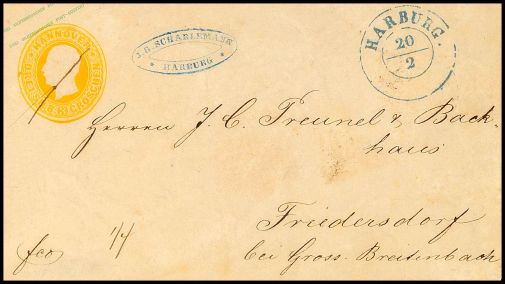 HANNOVER
J.G. SCHARLEMANN
HARBURG
HARBURG.
20
2
Herren J. C. Freunel & Back-
haus
Friedersdorf
bei Gross-Breitenbach
fco
1/4